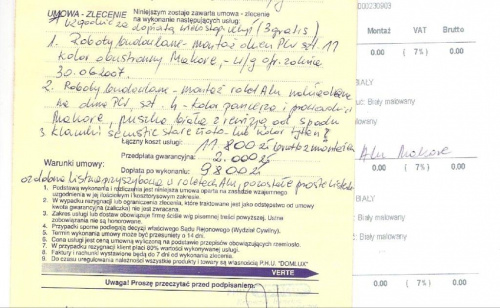 UMOWA - ZLECENIE
Niniejszym zostaje zawarta umowa - zlecenie
na wykonanie następujących usług:
(3 gratis)
1. Roboty budowlane - montaż okien PCV szt. 11
kolor obustronny Makore, - w/g ofr. z dnia
30.06.2007.
2. Roboty budowlane - montaż rolet Alu
na okna PCV, szt. 4 - kolor pancerza i
Makore, puszka biała z rewizją od spodu
3 Klamki stare złoto lub kolor tytan?
Łączny koszt usługi: 11 800 zł brutto z montażem
Przedpłata gwarancyjna: 2.000 zł
Dopłata po wykonaniu: 9800 zł
Warunki umowy:
ozdobna listwa przyszybowa w roletach Alu, pozostałe proste
1. Podstawą wykonania i rozliczenia jest niniejsza umowa oparta na zasadzie wzajemnego
uzgodnienia w jej ilościowym i kosztorysowym zakresie.
2. W wypadku rezygnacji lub ograniczenia zlecenia, które traktowane jest jako odstępstwo od umowy
kwota gwarancyjna (zaliczka) nie jest zwracana.
3. Zakres usług lub dostaw obowiązuje firmę ściśle w/g pisemnej treści powyższej. Ustne
zobowiązania nie są honorowane.
4. Przypadki sporne podlegają decyzji właściwego Sądu Rejonowego (Wydział Cywilny).
5. Termin wykonania umowy może być przesunięty o 14 dni.
6. Cona usługi jest ceną umowną wyliczoną na podstawie przepisów obowiązujących rzemiosło.
7. W przypadku rezygnacji klient płaci 80% wartości wykonywanej usługi.
8. Faktury i rachunki wystawione będą do 7 dni od wykonania zlecenia.
9. Do czasu uregulowania należności wszystkie produkty i towary są własnością P.H.U. "DOMLUX"
VERTE
Uwaga! Proszę przeczytać przed podpisaniem:
0000230903
Montaż VAT Brutto
0.00 ( 7%) 0.00
BIAŁY
ut: Biały malowany
Alu Makore
0.00 ( 7%) 0.00
BIAŁY
2: Biały malowany
0.00 ( 7%) 0.00